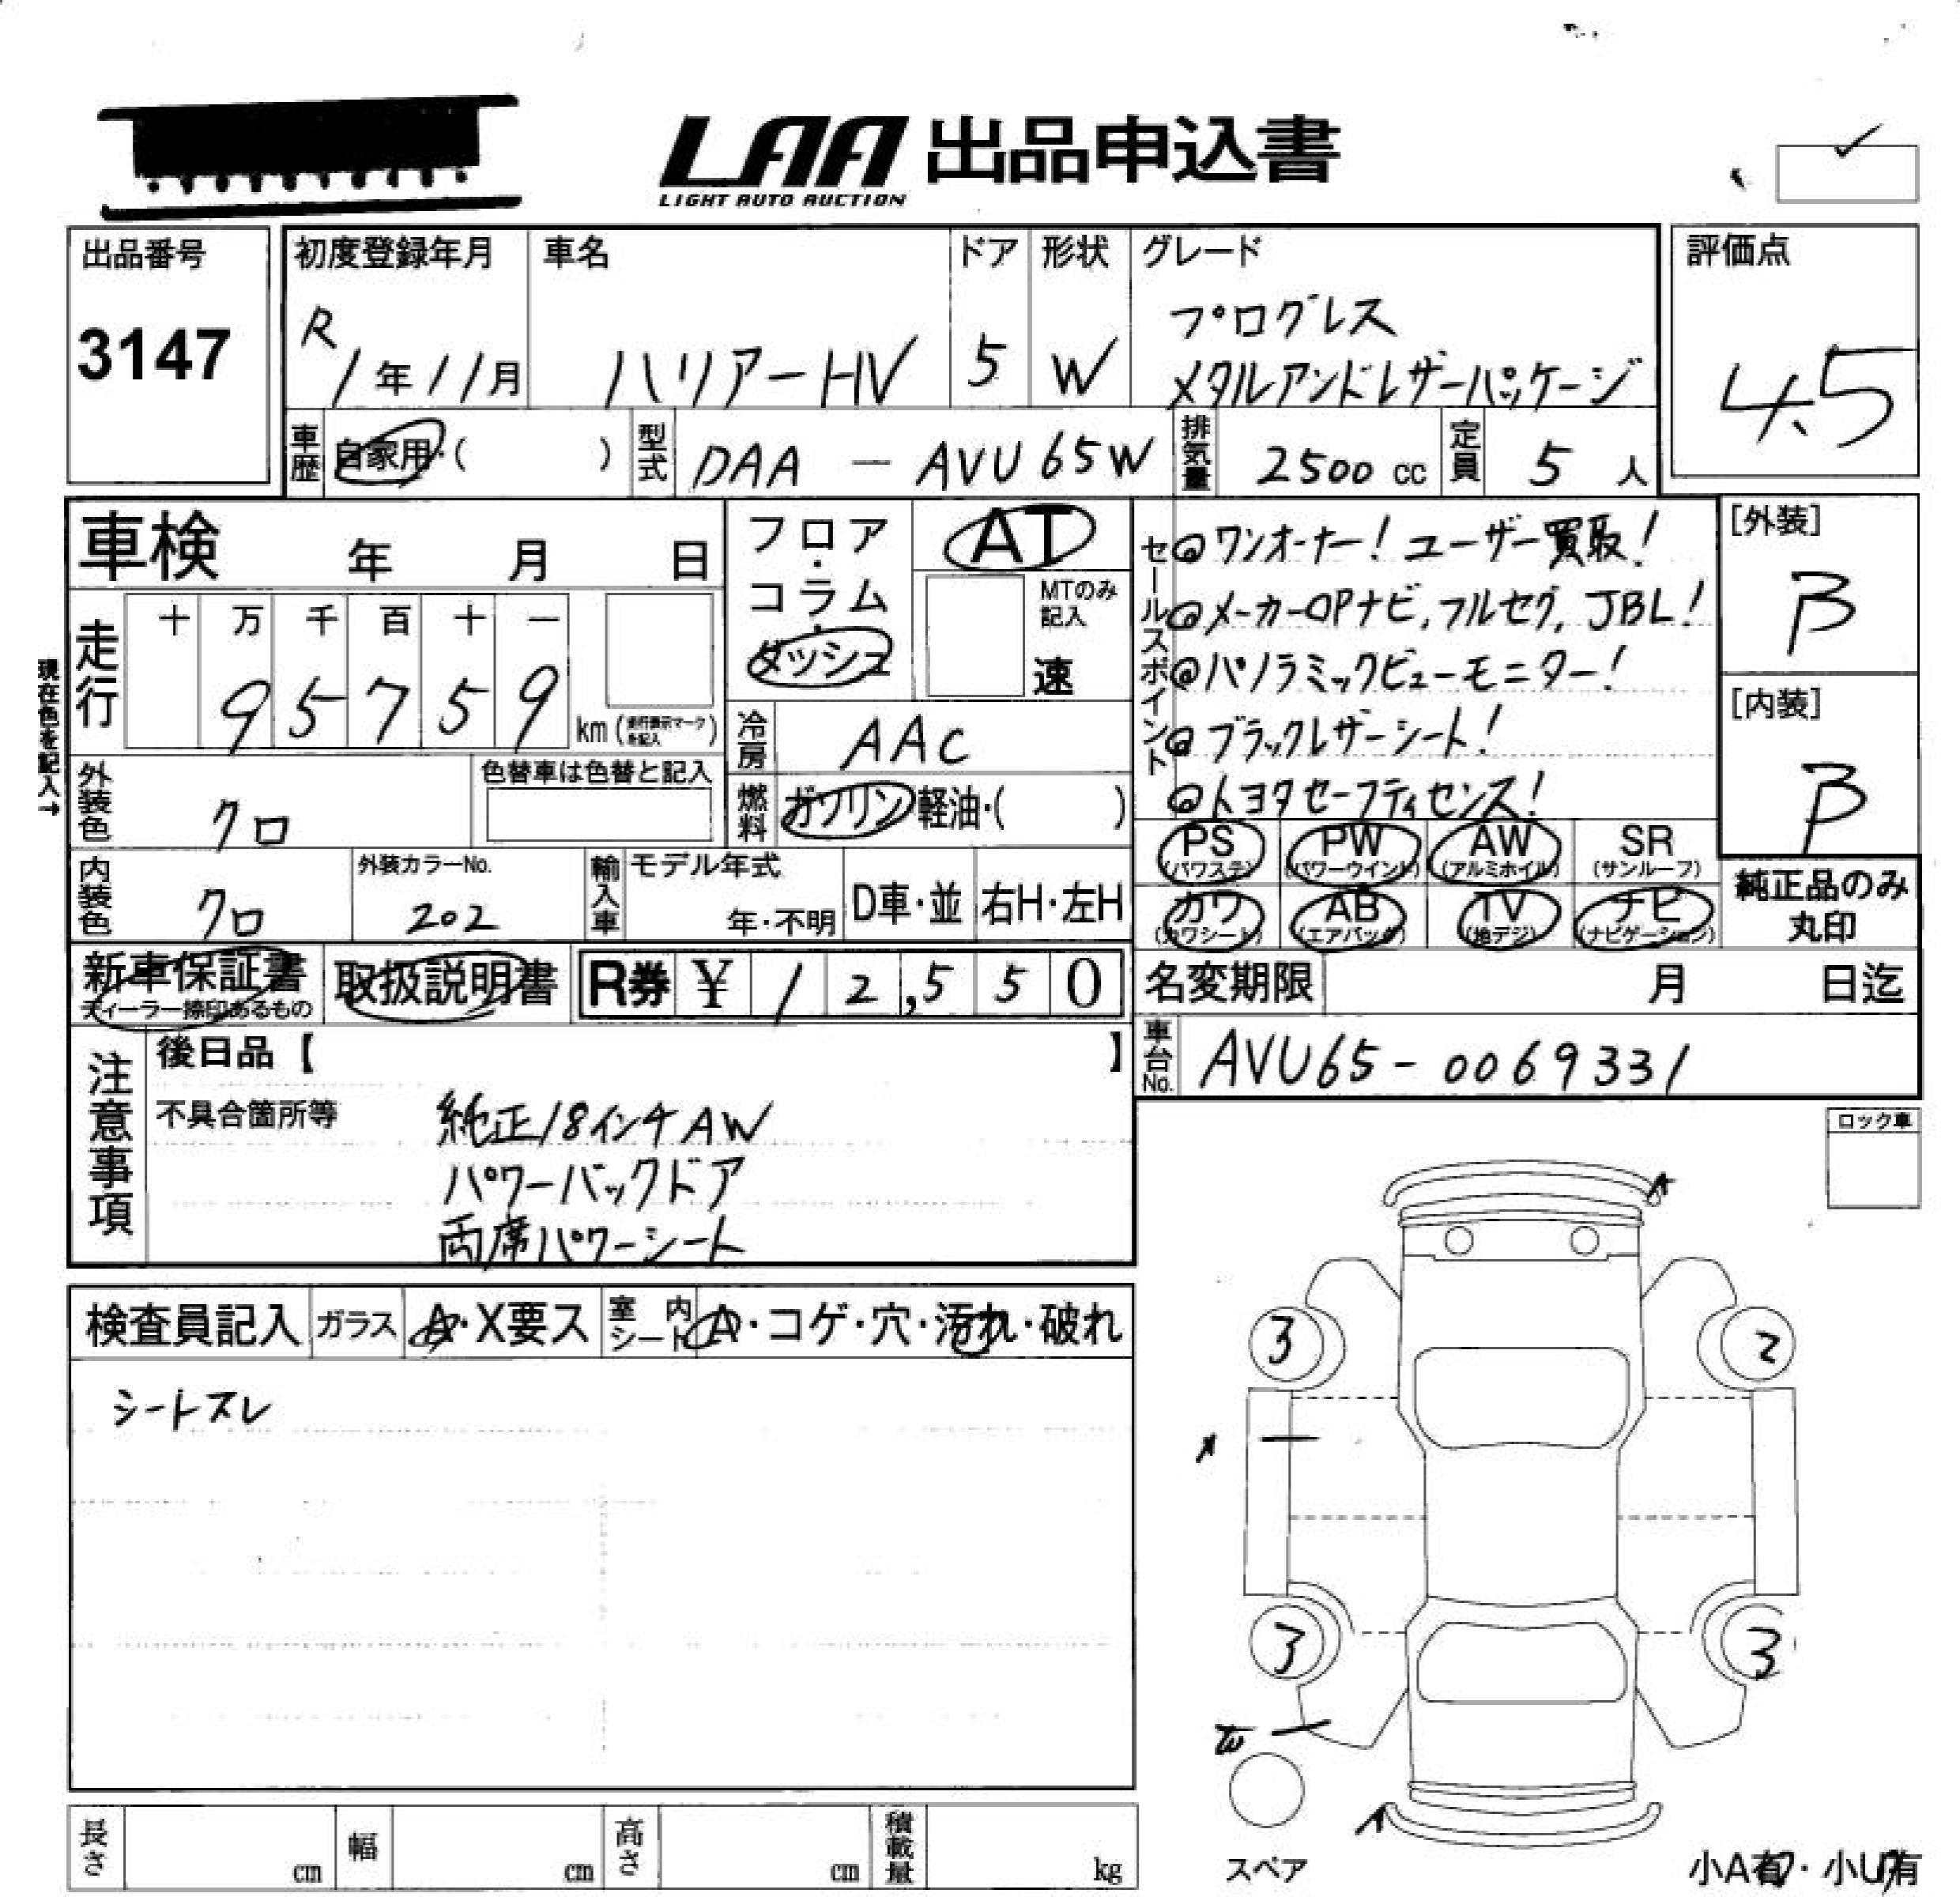 LAA 出品申込書
LIGHT AUTO AUCTION
出品番号
3147
初度登録年月
R 1年11月
車名
ハリアーHV
ドア
5
形状
W
グレード
プログレス
メタルアンドレザーパッケージ
評価点
4.5
車歴 自家用・( )
型式 DAA - AVU65W
排気量 2500 cc
定員 5 人
車検 年 月 日
走行 十 万 千 百 十 一
9 5 7 5 9 km
現在色を記入→
フロア・
コラム・
ダッシュ
AT
MTのみ
記入
速
冷房 AAC
燃料 ガソリン・軽油・( )
外装色 クロ
色替車は色替と記入
内装色 クロ
外装カラーNo.
202
輸入車 モデル年式
年・不明
D車・並 右H・左H
セールスポイント
@ワンオーナー! ユーザー買取!
@メーカーOPナビ,フルセグ,JBL!
@パノラミックビューモニター!
@ブラックレザーシート!
@トヨタセーフティセンス!
[外装]
B
[内装]
B
PS
(パワステ)
PW
(パワーウインド)
AW
(アルミホイル)
SR
(サンルーフ)
カワ
(カワシート)
AB
(エアバック)
TV
(地デジ)
ナビ
(ナビゲーション)
純正品のみ
丸印
新車保証書
ディーラー捺印あるもの
取扱説明書
R券 ¥ 12,550
名変期限 月 日迄
車台No. AVU65-0069331
注意事項
後日品【 】
不具合箇所等
純正18インチAW
パワーバックドア
両席パワーシート
ロック車
検査員記入 ガラス A・X要ス 室内シート A・コゲ・穴・汚れ・破れ
シートスレ
A
3
2
3
3
A
スペア
小A有・小U有
長さ cm 幅 cm 高さ cm 積載量 kg